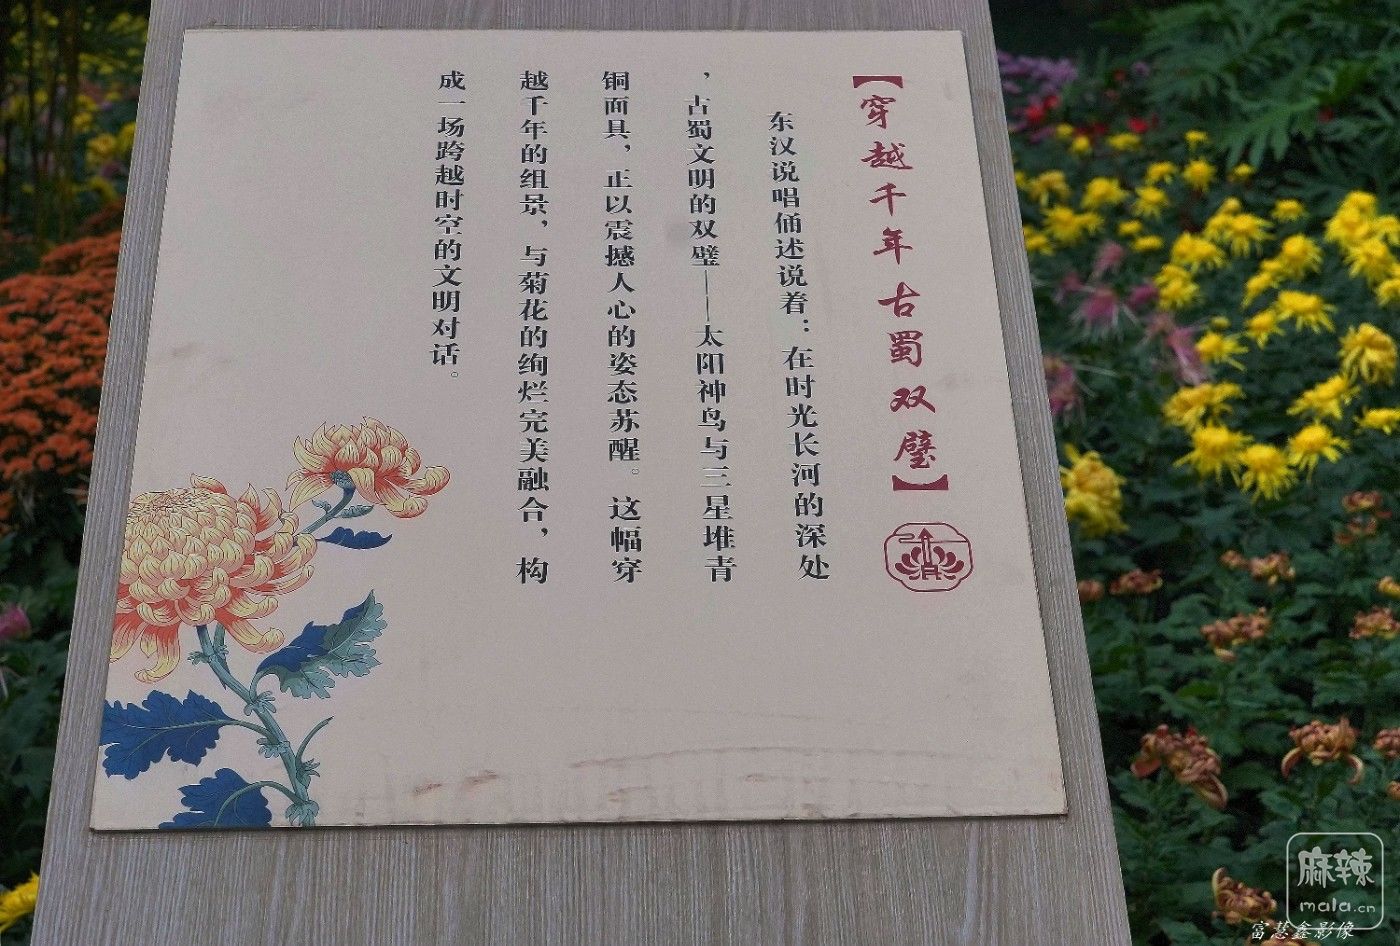 【穿越千年古蜀双璧】
东汉说唱俑述说着：在时光长河的深处
，古蜀文明的双璧——太阳神鸟与三星堆青
铜面具，正以震撼人心的姿态苏醒。这幅穿
越千年的组景，与菊花的绚烂完美融合，构
成一场跨越时空的文明对话。
麻辣
mala.cn
富慧鑫影像